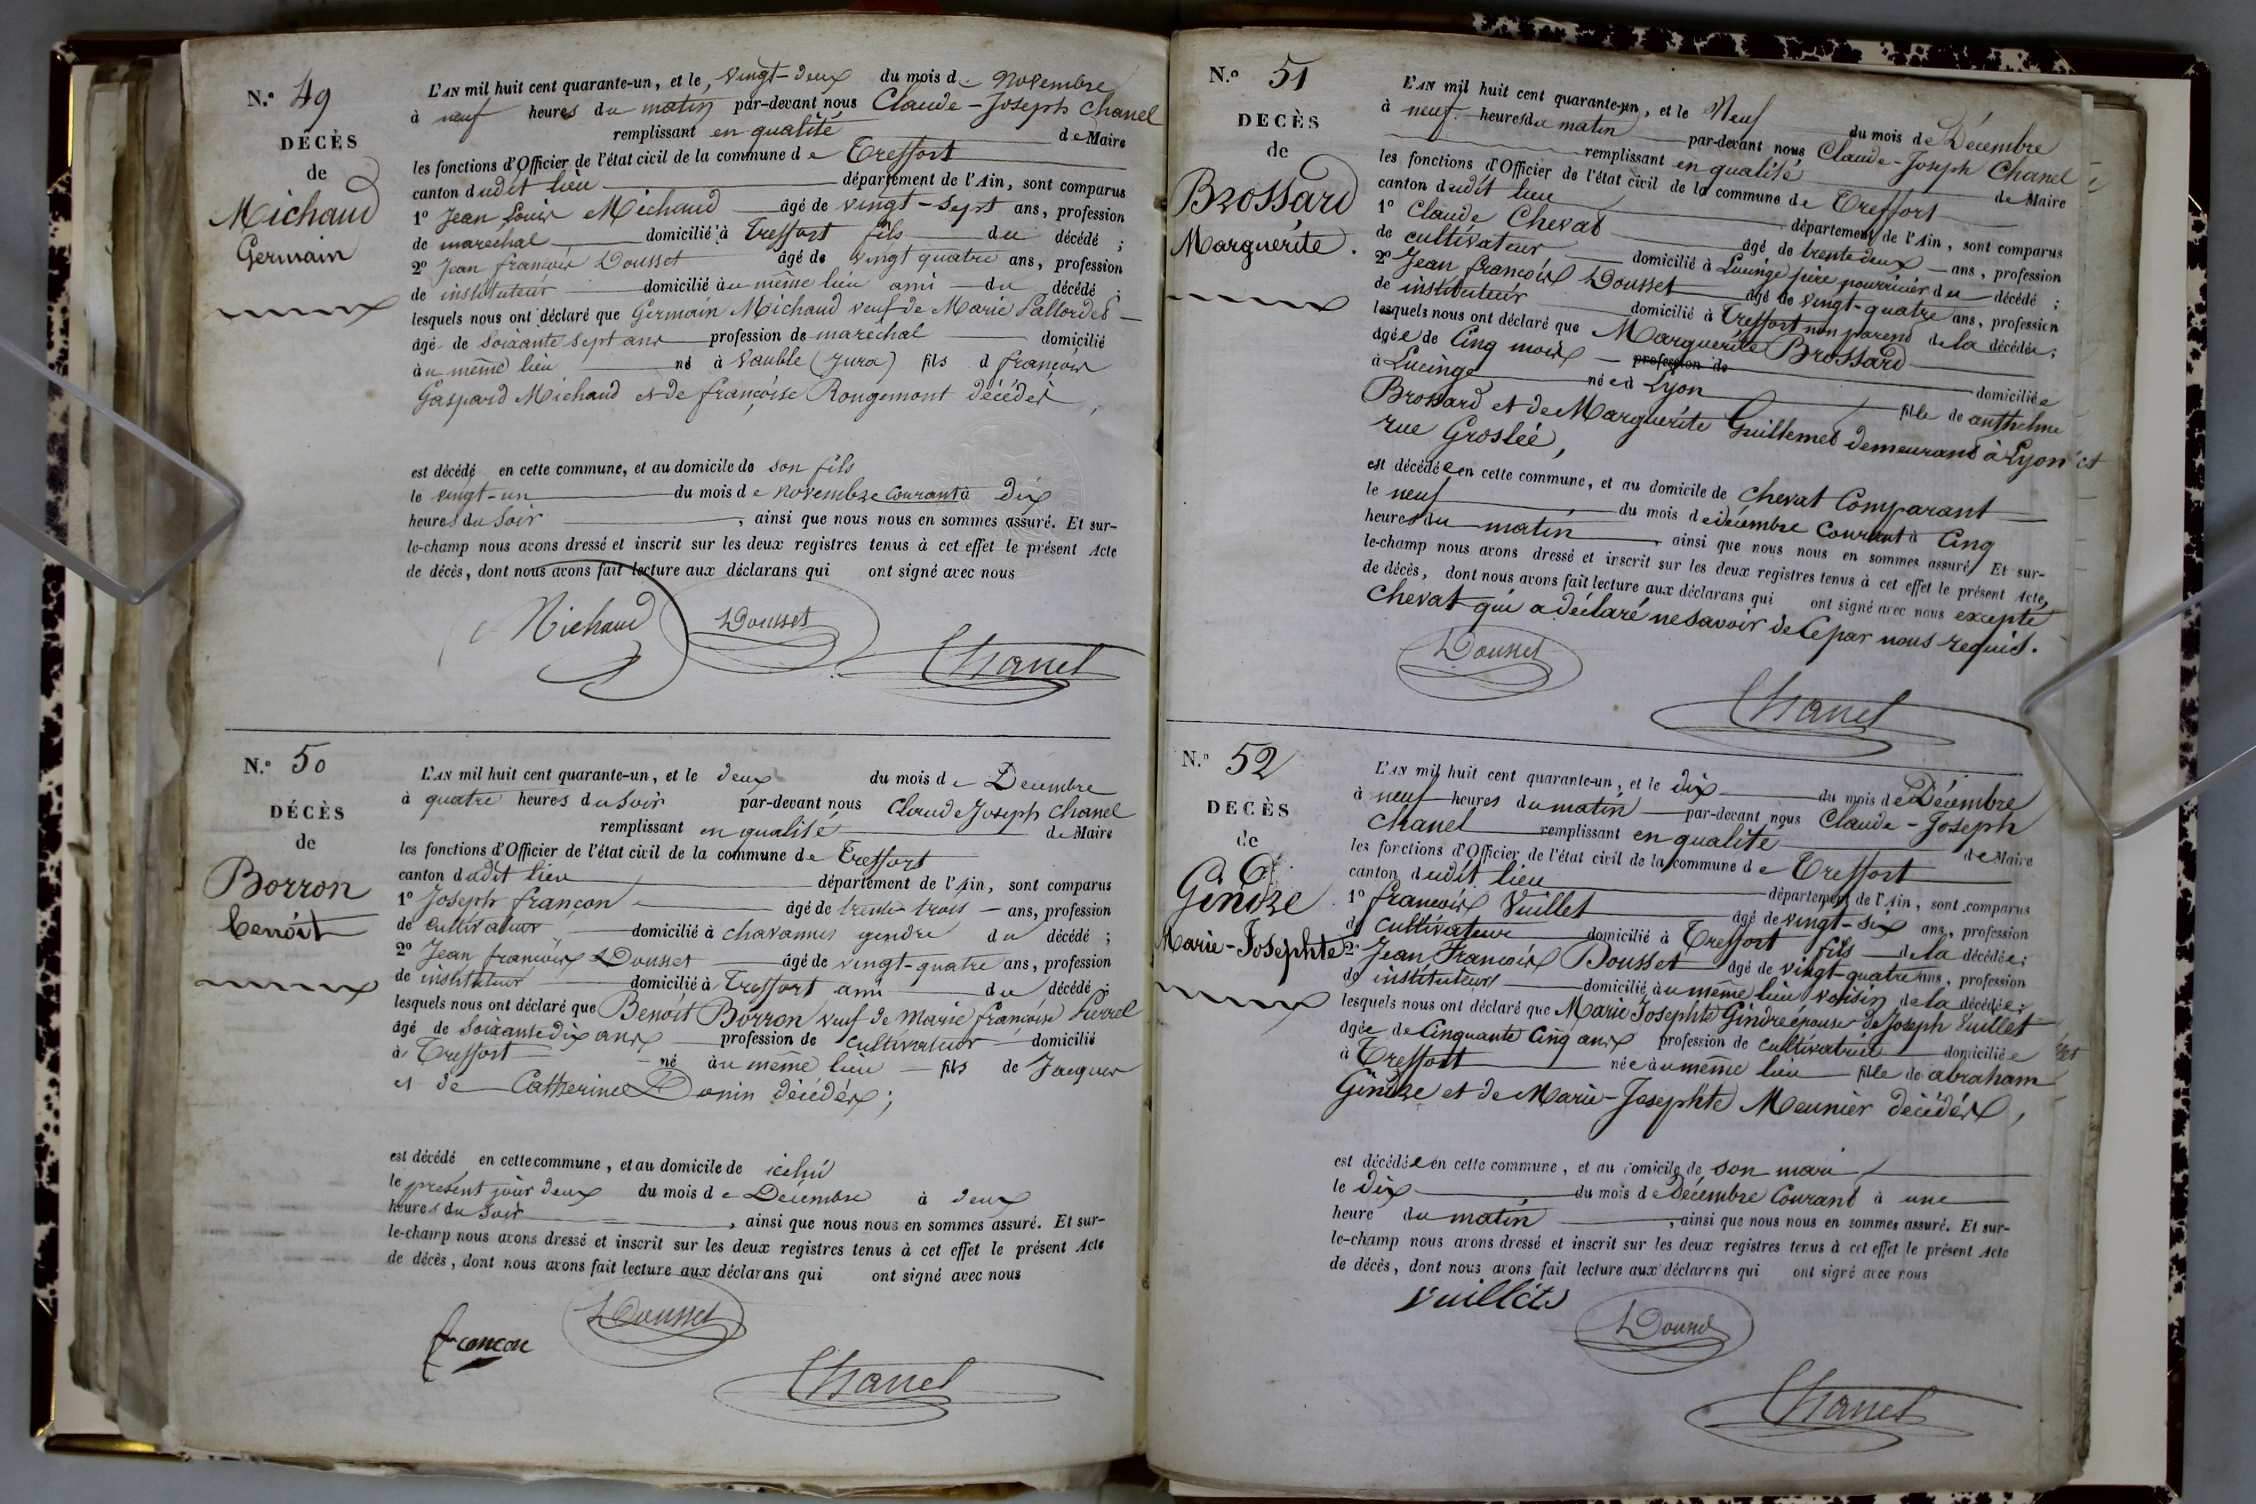 N.° 49
DÉCÈS
de
Michaud
Germain
L'AN mil huit cent quarante-un, et le, vingt-deux du mois de Novembre
à neuf heures du matin par-devant nous Claude-Joseph Chanel
remplissant en qualité de Maire
les fonctions d'Officier de l'état civil de la commune de Treffort
canton dudit lieu département de l'Ain, sont comparus
1° Jean Louis Michaud âgé de vingt-sept ans, profession
de maréchal domicilié à Treffort fils du décédé ;
2° Jean françois Dousset âgé de vingt quatre ans, profession
de instituteur domicilié au même lieu ami du décédé ;
lesquels nous ont déclaré que Germain Michaud veuf de Marie
âgé de soixante sept ans profession de maréchal domicilié
au même lieu né à Vauble (Jura) fils d françois
Gaspard Michaud et de françoise Rougemont décédés,
est décédé en cette commune, et au domicile de son fils
le vingt-un du mois de novembre courant à dix
heures du soir, ainsi que nous nous en sommes assuré. Et sur-
le-champ nous avons dressé et inscrit sur les deux registres tenus à cet effet le présent Acte
de décès, dont nous avons fait lecture aux déclarans qui ont signé avec nous
Michaud Dousset
Chanel
N.° 50
DÉCÈS
de
Borron
benoît
L'AN mil huit cent quarante-un, et le deux du mois de Decembre
à quatre heures du soir par-devant nous Claude Joseph Chanel
remplissant en qualité de Maire
les fonctions d'Officier de l'état civil de la commune de Treffort
canton dudit lieu département de l'Ain, sont comparus
1° Joseph françon âgé de trente trois ans, profession
de cultivateur domicilié à chavannes gendre du décédé ;
2° Jean françois Dousset âgé de vingt-quatre ans, profession
de instituteur domicilié à Treffort ami du décédé ;
lesquels nous ont déclaré que Benoît Borron veuf de Marie françoise
âgé de soixante dix ans profession de cultivateur domicilié
à Treffort né au même lieu fils de Jacques
et de Catherine Donin décédés ;
est décédé en cette commune, et au domicile de icelui
le présent jour deux du mois de Decembre à deux
heures du soir, ainsi que nous nous en sommes assuré. Et sur-
le-champ nous avons dressé et inscrit sur les deux registres tenus à cet effet le présent Acte
de décès, dont nous avons fait lecture aux déclarans qui ont signé avec nous
Dousset
françon
Chanel
N.° 51
DECÈS
de
Brossard
Marguerite.
L'AN mil huit cent quarante-un, et le Neuf du mois de Décembre
à neuf heures du matin par-devant nous Claude-Joseph Chanel
remplissant en qualité de Maire
les fonctions d'Officier de l'état civil de la commune de Treffort
canton dudit lieu département de l'Ain, sont comparus
1° Claude Chevat âgé de trente deux ans, profession
de cultivateur domicilié à Lucinge père nourricier du décédé ;
2° Jean françois Dousset âgé de vingt-quatre ans, profession
de instituteur domicilié à Treffort non parent de la décédée ;
lesquels nous ont déclaré que Marguerite Brossard
âgée de Cinq mois profession de domiciliée
à Lucinge née à Lyon fille de anthelme
Brossard et de Marguerite Guillemet demeurant à Lyon
rue Groslée,
est décédée en cette commune, et au domicile de Chevat Comparant
le neuf du mois de décembre courant à Cinq
heures du matin, ainsi que nous nous en sommes assuré. Et sur-
le-champ nous avons dressé et inscrit sur les deux registres tenus à cet effet le présent Acte,
de décès, dont nous avons fait lecture aux déclarans qui ont signé avec nous excepté
Chevat qui a déclaré ne savoir de ce par nous requis.
Dousset
Chanel
N.° 52
DECÈS
de
Gindre
Marie-Josephte
L'AN mil huit cent quarante-un, et le dix du mois de Décembre
à neuf heures du matin par-devant nous Claude-Joseph
Chanel remplissant en qualité de Maire
les fonctions d'Officier de l'état civil de la commune de Treffort
canton dudit lieu département de l'Ain, sont comparus
1° françois Vuillet âgé de vingt-six ans, profession
de cultivateur domicilié à Treffort fils de la décédée ;
2° Jean François Dousset âgé de vingt-quatre ans, profession
de instituteur domicilié au même lieu voisin de la décédée ;
lesquels nous ont déclaré que Marie Josephte Gindre épouse de Joseph Vuillet
âgée de Cinquante Cinq ans profession de cultivatrice domiciliée
à Treffort née au même lieu fille de abraham
Gindre et de Marie-Josephte Meunier décédés,
est décédée en cette commune, et au domicile de son mari
le dix du mois de Décembre Courant à une
heure du matin, ainsi que nous nous en sommes assuré. Et sur-
le-champ nous avons dressé et inscrit sur les deux registres tenus à cet effet le présent Acte
de décès, dont nous avons fait lecture aux déclarans qui ont signé avec nous
Vuillets
Dousset
Chanel